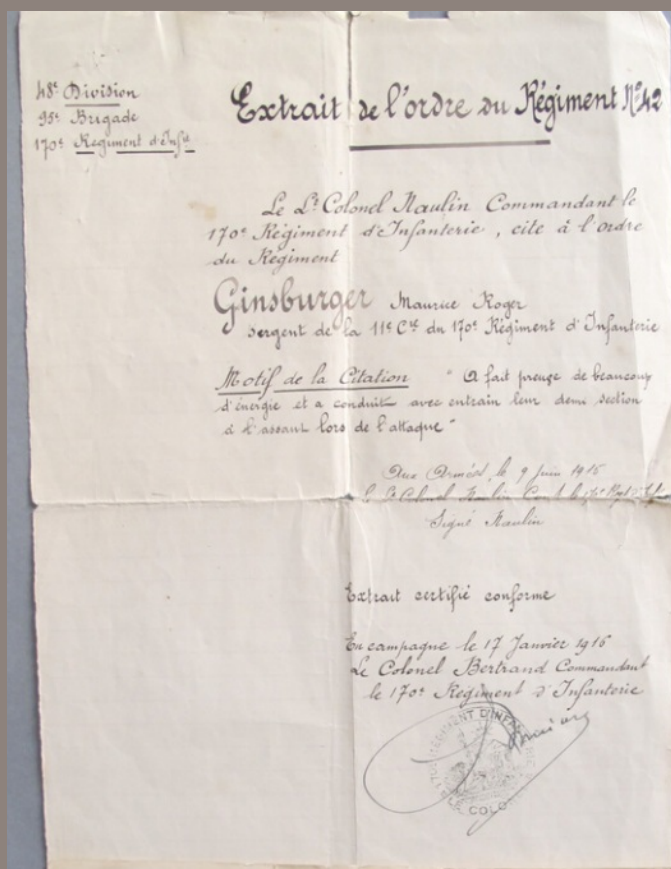 48e Division
95e Brigade
170e Régiment d'Infie
Extrait de l'ordre du Régiment No 42
Le Lt Colonel Naulin Commandant le
170e Régiment d'Infanterie, cite à l'ordre
du Régiment
Ginsburger Maurice Roger
sergent de la 11e Cie du 170e Régiment d'Infanterie
Motif de la Citation " A fait preuve de beaucoup
d'énergie et a conduit avec entrain leur demi section
à l'assaut lors de l'attaque "
Aux Armées, le 9 juin 1915
le Lt Colonel Naulin Comt le 170e Rgt
Signé Naulin
Extrait certifié conforme
En campagne le 17 Janvier 1916
Le Colonel Bertrand Commandant
le 170e Régiment d'Infanterie
RÉGIMENT D'INFANTERIE
COLO